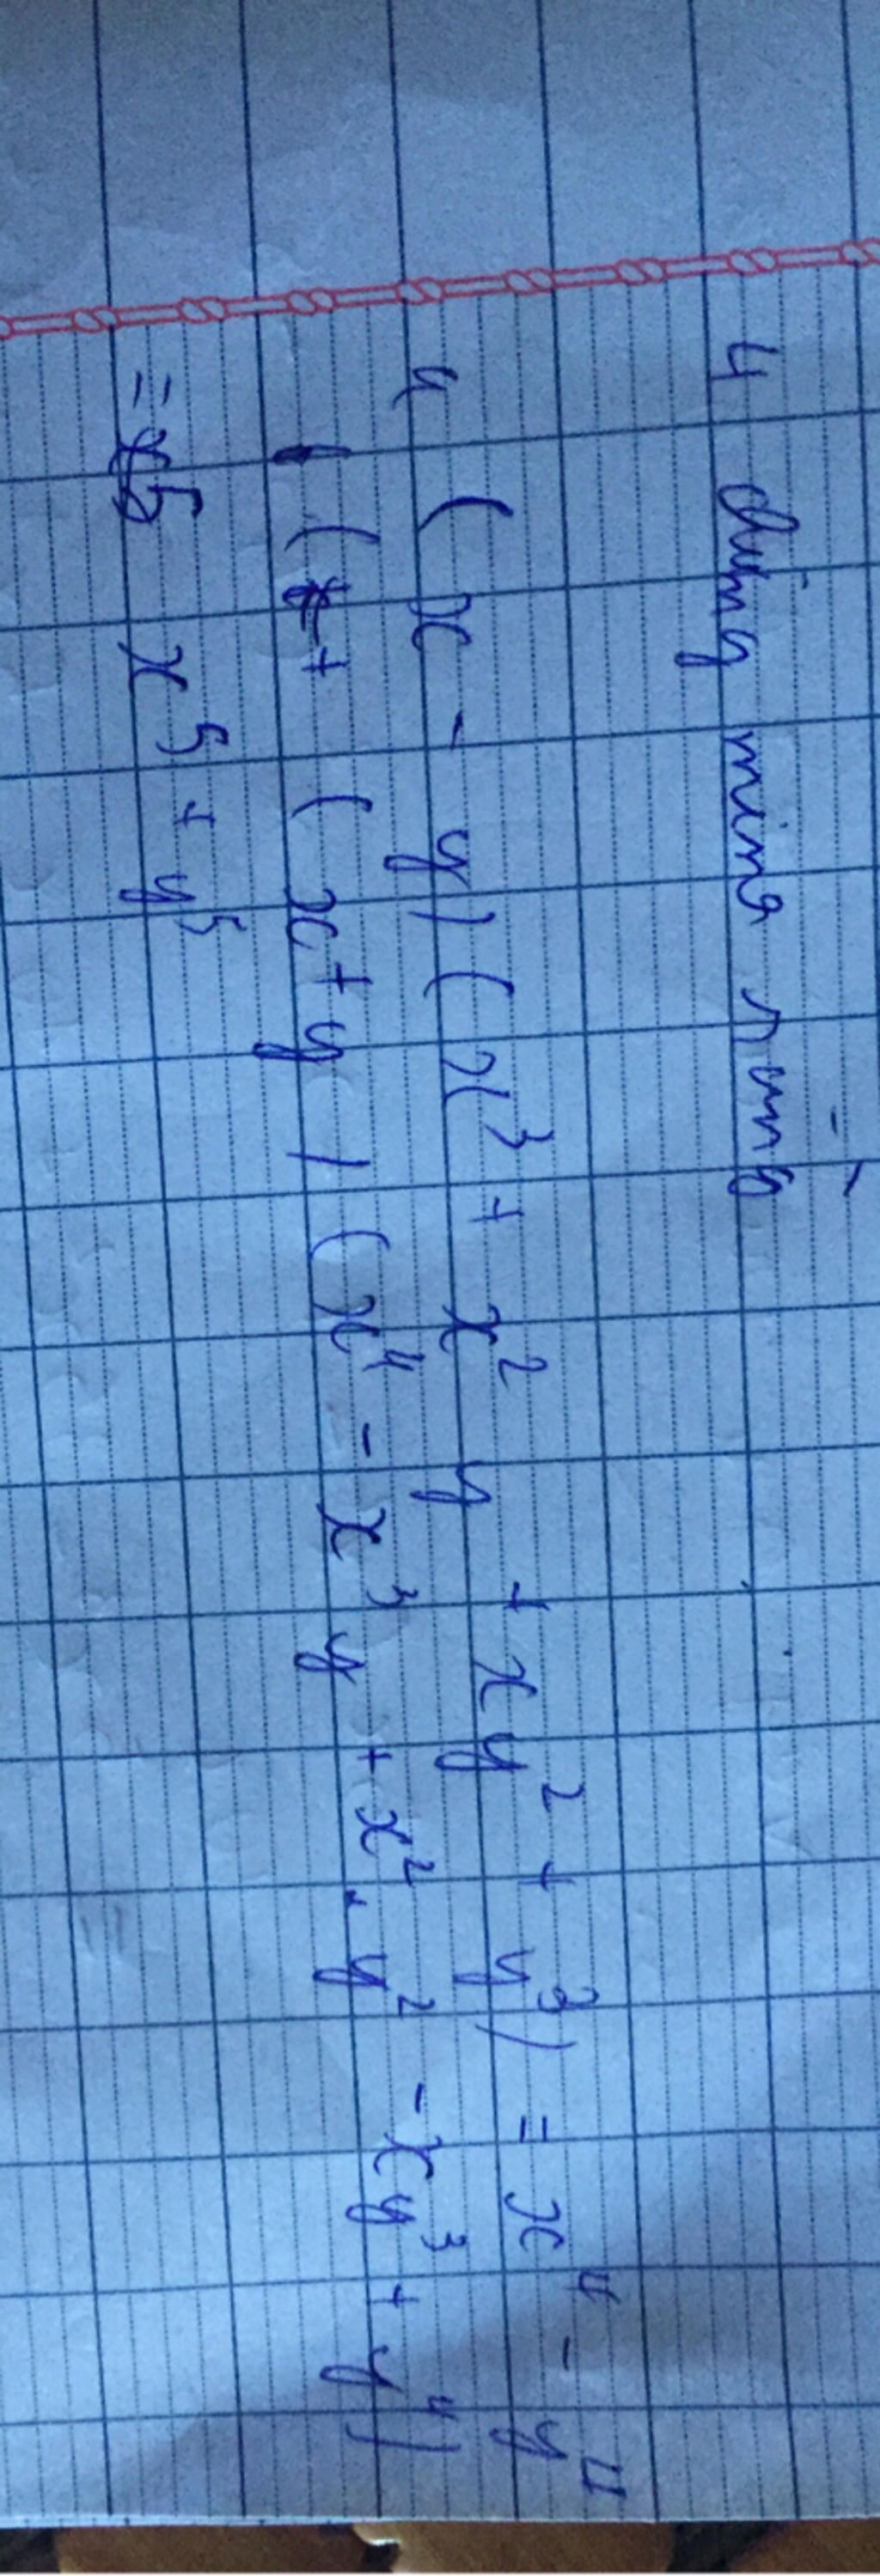 4 chứng minh rằng
4 (x - y) (x³ + x² y + xy² + y³) = x⁴ - y⁴
(x + y) (x⁴ - x³ y + x² . y² - xy³ + y⁴)
= x⁵ + y⁵